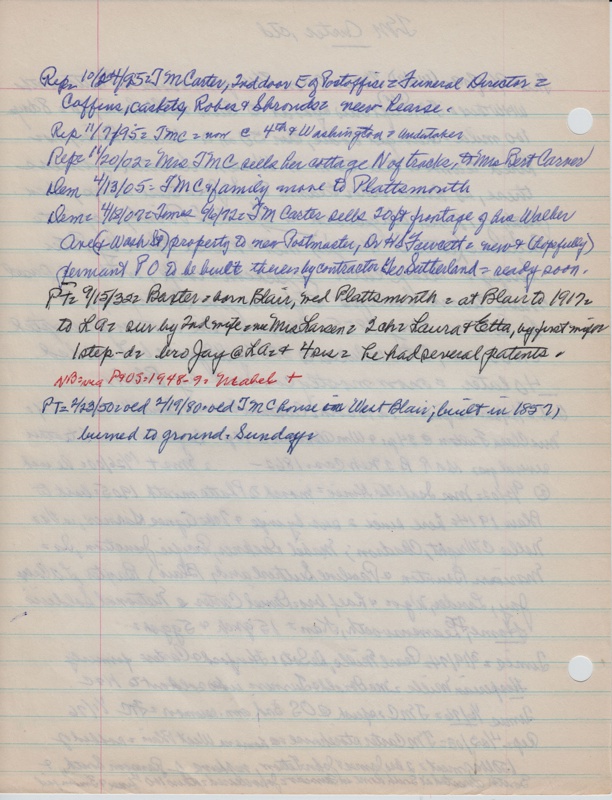 Rep= 10/24/95= JM Carter, 2nd door E of Postoffice = Funeral Director =
Coffins, caskets, Robes & Shrouds= new hearse.
Rep 11/7/95= JMC= now c 4th & Washington = undertaker
Rep= 11/20/02= Mrs JMC sells her cottage N of tracks, to Mrs Bert Carner
Dem 4/13/05= JMC & family move to Plattsmouth
Dem= 4/18/07= Times 9/6/72= JM Carter sells 20ft frontage of his Walker
Ave (& Wash St) property to now Postmaster, Dr HS Fawcett = new & (hopefully)
permant PO to be built there by contractor Geo Sutherland = ready soon.
PT= 9/15/32= Baxter= born Blair, wed Plattsmouth = at Blair to 1917=
to LA= sur by 2nd wife = Mrs Larsen= 2ch= Laura & Etta, by first mrge
1 step-d= bro Jay @ LA= & 4sis = he had several patents.
NB= via P405=1948-9= Mabel +
PT= 2/23/50= ved 2/19/80= ved JMC house in West Blair; built in 1857,
burned to ground= Sunday=